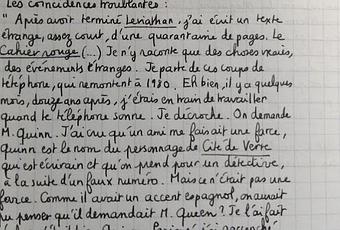 Les coïncidences troublantes :
" Après avoir terminé Leviathan, j'ai écrit un texte
étrange, assez court, d'une quarantaine de pages. Le
Cahier rouge (...) Je n'y raconte que des choses vraies,
des événements étranges. Je parle de ces coups de
téléphone, qui remontent à 1980. Eh bien, il y a quelques
mois, douze ans après, j'étais en train de travailler
quand le téléphone sonne. Je décroche. On demande
M. Quinn. J'ai cru qu'un ami me faisait une farce,
Quinn est le nom du personnage de Cité de Verre
qui est écrivain et qu'on prend pour un détective,
à la suite d'un faux numéro. Mais ce n'était pas une
farce. Comme il avait un accent espagnol, on aurait
pu penser qu'il demandait M. Queen ? Je l'ai fait